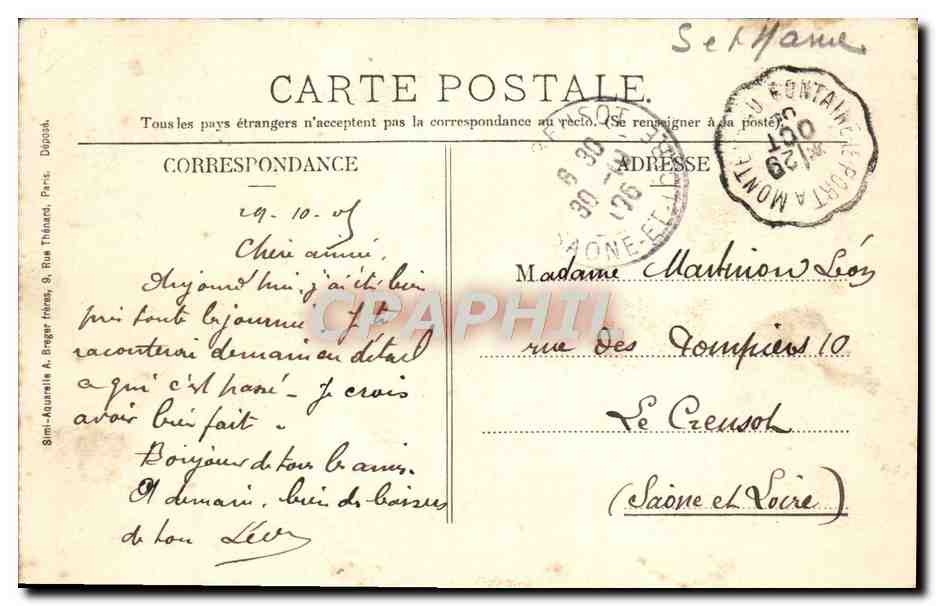 Set Marne
CARTE POSTALE.
Tous les pays étrangers n'acceptent pas la correspondance au recto. (Se renseigner à la poste).
CORRESPONDANCE
ADRESSE
29-10-05
Chère amie.
Aujourd'hui j'ai été bien
pris toute la journée. Je te
raconterai demain en détail
a qui c'est passé - Je crois
avoir bien fait.
Bonjour de tous les amis.
A demain, bien des baisers
de ton Léon
Madame Martinon Léon
rue des Pompiers 10
Le Creusot
(Saône et Loire)
Simi-Aquarelle A. Breger frères, 9, Rue Thénard, Paris. Déposé.
SAONE-ET-LOIRE
8 30
30
MONTEREAU
29
OCT
CRAPHIL